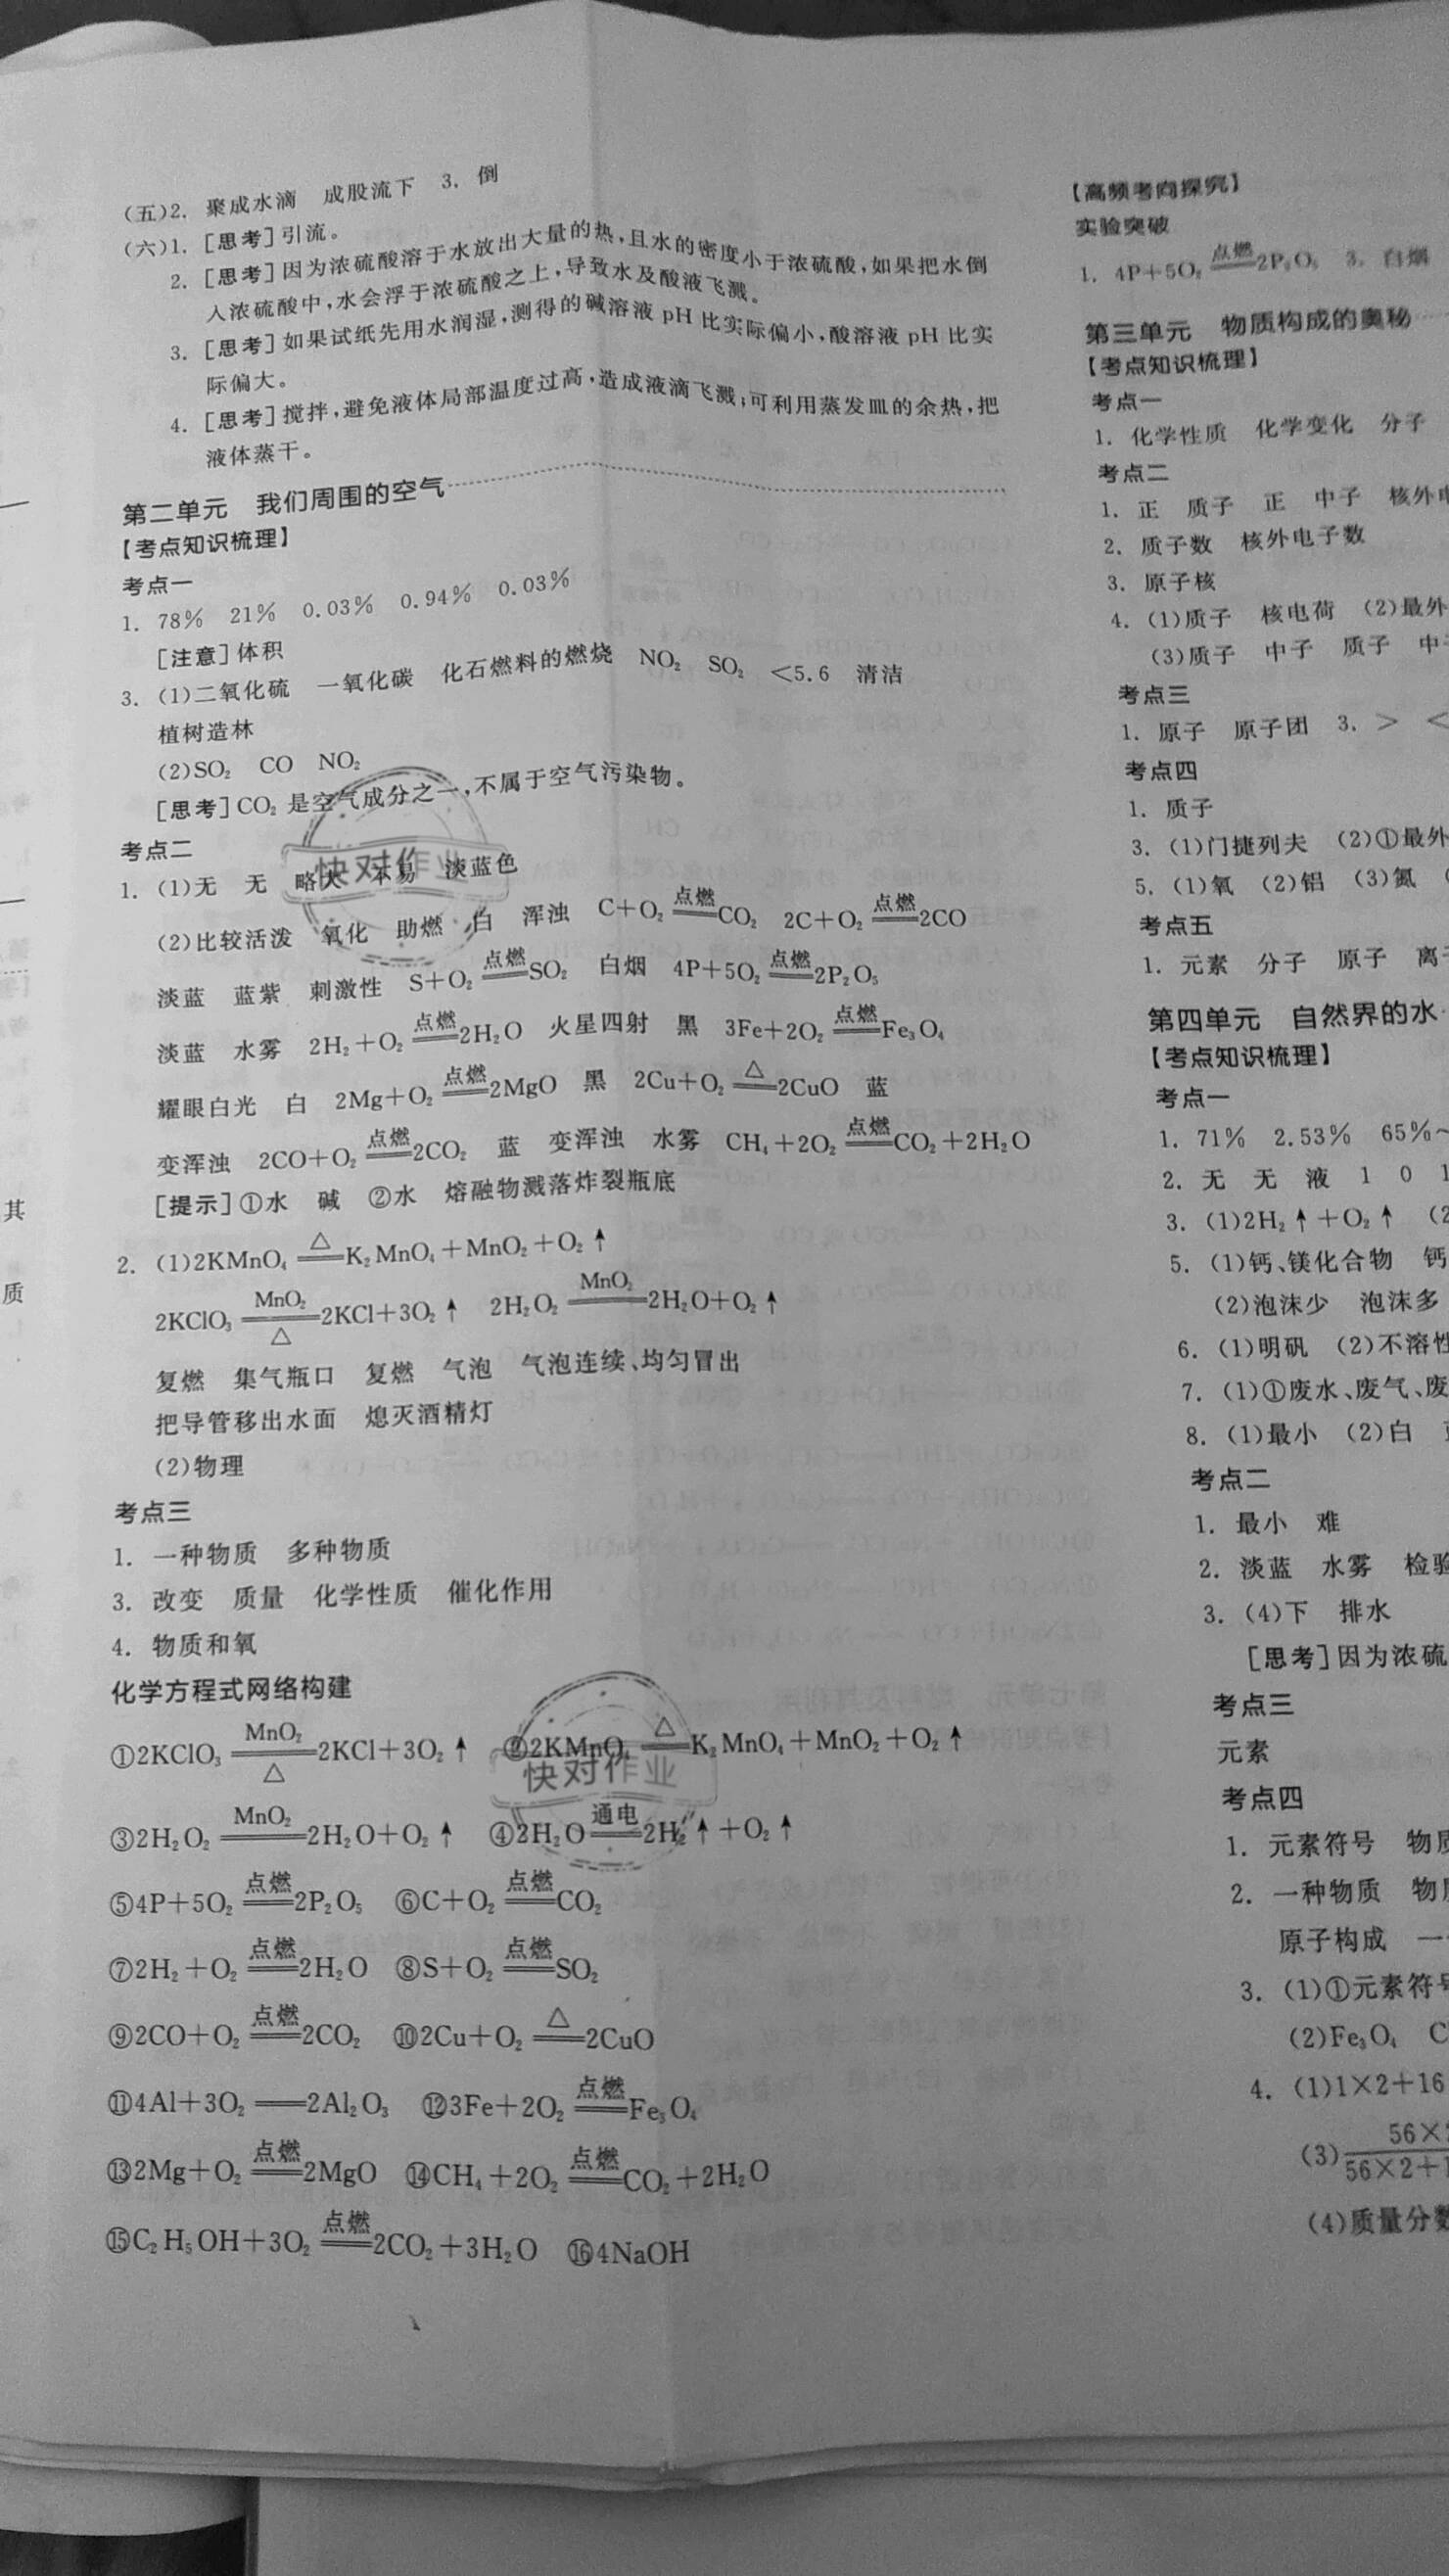 (五)2. 聚成水滴 成股流下 3. 倒
(六)1. [思考]引流。
2. [思考]因为浓硫酸溶于水放出大量的热,且水的密度小于浓硫酸,如果把水倒
入浓硫酸中,水会浮于浓硫酸之上,导致水及酸液飞溅。
3. [思考]如果试纸先用水润湿,测得的碱溶液 pH 比实际偏小,酸溶液 pH 比实
际偏大。
4. [思考]搅拌,避免液体局部温度过高,造成液滴飞溅;可利用蒸发皿的余热,把
液体蒸干。
第二单元 我们周围的空气
【考点知识梳理】
考点一
1. 78% 21% 0.03% 0.94% 0.03%
[注意]体积
3. (1)二氧化硫 一氧化碳 化石燃料的燃烧 NO₂ SO₂ <5.6 清洁
植树造林
(2)SO₂ CO NO₂
[思考]CO₂ 是空气成分之一,不属于空气污染物。
考点二
1. (1)无 无 略大 不易 淡蓝色
(2)比较活泼 氧化 助燃 白 浑浊 C+O₂ =点燃= CO₂ 2C+O₂ =点燃= 2CO
淡蓝 蓝紫 刺激性 S+O₂ =点燃= SO₂ 白烟 4P+5O₂ =点燃= 2P₂O₅
淡蓝 水雾 2H₂+O₂ =点燃= 2H₂O 火星四射 黑 3Fe+2O₂ =点燃= Fe₃O₄
耀眼白光 白 2Mg+O₂ =点燃= 2MgO 黑 2Cu+O₂ =△= 2CuO 蓝
变浑浊 2CO+O₂ =点燃= 2CO₂ 蓝 变浑浊 水雾 CH₄+2O₂ =点燃= CO₂+2H₂O
[提示]①水 碱 ②水 熔融物溅落炸裂瓶底
2. (1)2KMnO₄ =△= K₂MnO₄+MnO₂+O₂↑
2KClO₃ =MnO₂/△= 2KCl+3O₂↑ 2H₂O₂ =MnO₂= 2H₂O+O₂↑
复燃 集气瓶口 复燃 气泡 气泡连续、均匀冒出
把导管移出水面 熄灭酒精灯
(2)物理
考点三
1. 一种物质 多种物质
3. 改变 质量 化学性质 催化作用
4. 物质和氧
化学方程式网络构建
①2KClO₃ =MnO₂/△= 2KCl+3O₂↑ ②2KMnO₄ =△= K₂MnO₄+MnO₂+O₂↑
③2H₂O₂ =MnO₂= 2H₂O+O₂↑ ④2H₂O =通电= 2H₂↑+O₂↑
⑤4P+5O₂ =点燃= 2P₂O₅ ⑥C+O₂ =点燃= CO₂
⑦2H₂+O₂ =点燃= 2H₂O ⑧S+O₂ =点燃= SO₂
⑨2CO+O₂ =点燃= 2CO₂ ⑩2Cu+O₂ =△= 2CuO
⑪4Al+3O₂ == 2Al₂O₃ ⑫3Fe+2O₂ =点燃= Fe₃O₄
⑬2Mg+O₂ =点燃= 2MgO ⑭CH₄+2O₂ =点燃= CO₂+2H₂O
⑮C₂H₅OH+3O₂ =点燃= 2CO₂+3H₂O ⑯4NaOH
快对作业
快对作业
其
质
【高频考向探究】
实验突破
1. 4P+5O₂ =点燃= 2P₂O₅ 3. 白烟
第三单元 物质构成的奥秘
【考点知识梳理】
考点一
1. 化学性质 化学变化 分子
考点二
1. 正 质子 正 中子 核外
2. 质子数 核外电子数
3. 原子核
4. (1)质子 核电荷 (2)最外
(3)质子 中子 质子 中
考点三
1. 原子 原子团 3. > <
考点四
1. 质子
3. (1)门捷列夫 (2)①最外
5. (1)氧 (2)铝 (3)氮
考点五
1. 元素 分子 原子 离
第四单元 自然界的水
【考点知识梳理】
考点一
1. 71% 2.53% 65%~
2. 无 无 液 1 0
3. (1)2H₂↑+O₂↑
5. (1)钙、镁化合物 钙
(2)泡沫少 泡沫多
6. (1)明矾 (2)不溶性
7. (1)①废水、废气、废
8. (1)最小 (2)白
考点二
1. 最小 难
2. 淡蓝 水雾 检验
3. (4)下 排水
[思考]因为浓硫
考点三
元素
考点四
1. 元素符号 物质
2. 一种物质 物
原子构成 一
3. (1)①元素符号
(2)Fe₃O₄ C
4. (1)1×2+16
(3) 56×
56×2+
(4)质量分数